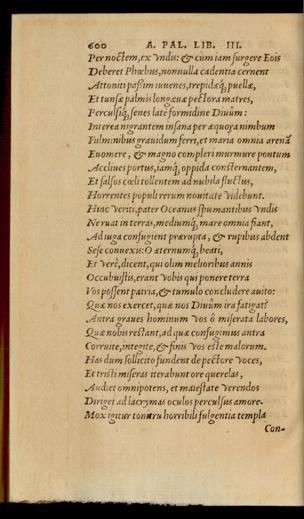 600 A. PAL. LIB. III.
Per noctem, ex vndis: & cum iam surgere Eois
Deberet Phœbus, nonnulla cadentia cernent
Attoniti passim iuuenes, trepidæq́; puellæ,
Et tunsæ palmis longæua pectora matres,
Perculsiq́; senes latè formidine Diuûm:
Interea nigrantem insana per æquora nimbum
Fulminibus grauidum ferri, et maria omnia arenã
Euomere, & magno compleri murmure pontum
Accliues portus, iamq́; oppida consternantem,
Et salsos cœli tollentem ad nubila fluctus,
Horrentes populi rerum nouitate videbunt.
Hinc veriti, pater Oceanus spumantibus vndis
Ne ruat in terras, mediumq́; mare omnia fiant,
Ad iuga confugient prærupta, & rupibus abdent
Sese conuexis: O æternumq́; beati,
Et verè, dicent, qui olim melioribus annis
Occubuistis, erant vobis qui ponere terra
Vos possent patria, & tumulo concludere auito:
Quæ nos exercet, quæ nos Diuûm ira fatigat?
Antra graues hominum vos ô miserata labores,
Quæ nobis restant, ad quæ confugimus antra
Corruite, integite, & finis vos este malorum.
Has dum sollicito fundent de pectore voces,
Et tristi miseras iterabunt ore querelas,
Audiet omnipotens, et maiestate verendos
Diriget ad lacrymas oculos perculsus amore.
Mox igitur tonitru horribili fulgentia templa
Con-